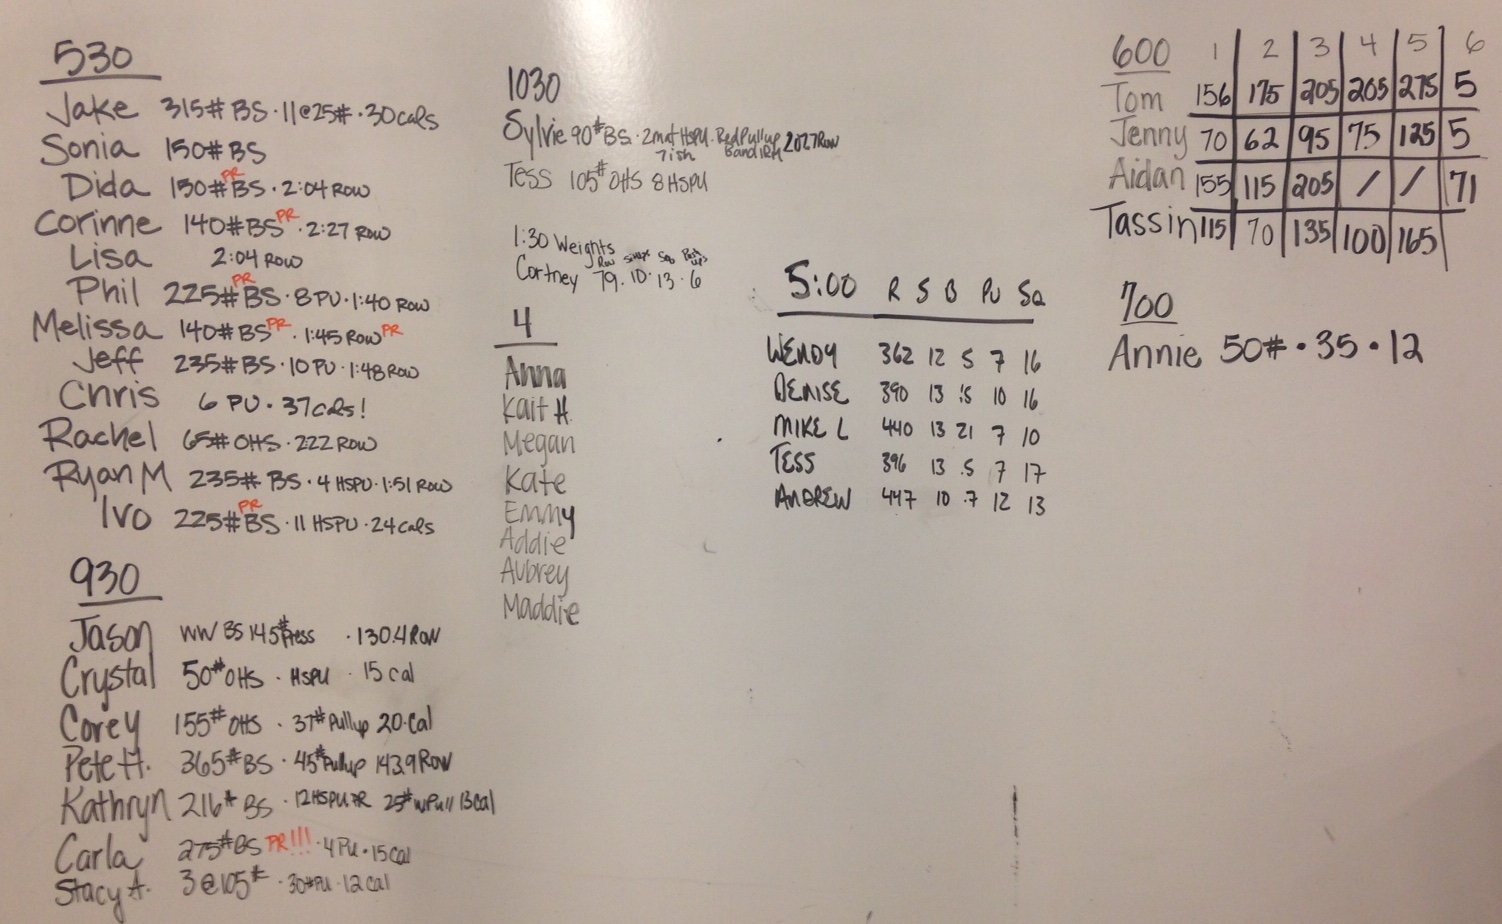 530
Jake 315# BS · 11@25# · 30cals
Sonia 150# BS
PR
Dida 130# BS · 2:04 ROW
Corinne 140# BS PR · 2:27 ROW
Lisa 2:04 ROW
PR
Phil 225# BS · 8 PU · 1:40 ROW
Melissa 140# BS PR · 1:45 ROW PR
Jeff 235# BS · 10 PU · 1:48 ROW
Chris 6 PU · 37cals!
Rachel 65# OHS · 222 ROW
Ryan M 235# BS · 4 HSPU · 1:51 ROW
PR
Ivo 225# BS · 11 HSPU · 24 cals
930
Jason WW BS 145# Press · 130.4 ROW
Crystal 50# OHS · HSPU · 15 cal
Corey 155# OHS · 37# Pullup 20 Cal
Pete H. 365# BS · 45# Pullup 143.9 Row
Kathryn 216# BS · 12 HSPU PR 25# wPull 13 Cal
Carla 275# BS PR!!! · 4 PU · 15 Cal
Stacy A. 3@105# · 30# PU · 12 Cal
1030
Sylvie 90# BS · 2 mat HSPU · Red Pullup 207.7 Row
7ish Band 1RM
Tess 105# OHS 8 HSPU
1:30 Weights
Row Squ
Cortney 79 · 10 · 13 · 6
4
Anna
Kait H.
Megan
Kate
Emmy
Addie
Aubrey
Maddie
5:00 R S B PU SQ
WENDY 362 12 5 7 16
DENISE 390 13 .5 10 16
MIKE L 440 13 21 7 10
TESS 396 13 .5 7 17
ANDREW 447 10 .7 12 13
600 1 2 3 4 5 6
Tom 156 175 205 205 275 5
Jenny 70 62 95 75 125 5
Aidan 155 115 205 / / 71
Tassin 115 70 135 100 165
700
Annie 50# · 35 · 12